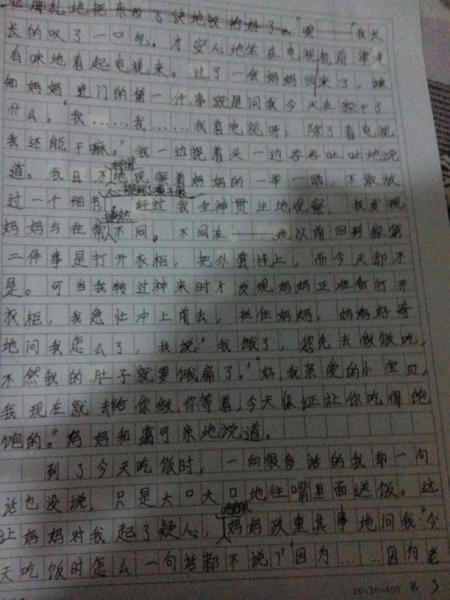 乱地把东西了快地收拾好了。"唉——"我长
长的叹了一口气。才安心地坐在电视机前津津
有味地看起电视来。过了一会妈妈回来了,
妈妈进门的第一件事就是问我今天在家干了
什么。"我……我……我看电视呀,除了看电视
我还能干嘛。"我一边挠着头一边吞吞吐吐地说
道。我目不 地观察着妈妈的一举一动,不敢放
过一个细节, 经过我全神贯注地观察,我发现
妈妈与往常不同。不同在——她以前回到家第
二件事是打开衣柜,把外套挂上,而今天却不
是。可当我转过神来时才发现妈妈正准备打开
衣柜,我急忙冲上前去,拦住妈妈,妈妈好奇
地问我怎么了,我说:"我饿了,您先去做饭吧,
不然我的肚子就要饿扁了。""好,我亲爱的小宝贝,
我现在就去给你做,你等着,今天保证让你吃得饱
饱的。"妈妈和蔼可亲地说道。
到了今天吃饭时,一向很多话的我却一句
话也没说,只是大口大口地往嘴里面送饭。这
让妈妈对我起了疑心,妈妈郑重其事地问我:"今
天吃饭时怎么一句话都不说?""因为……因为老
20×20=400 第 3